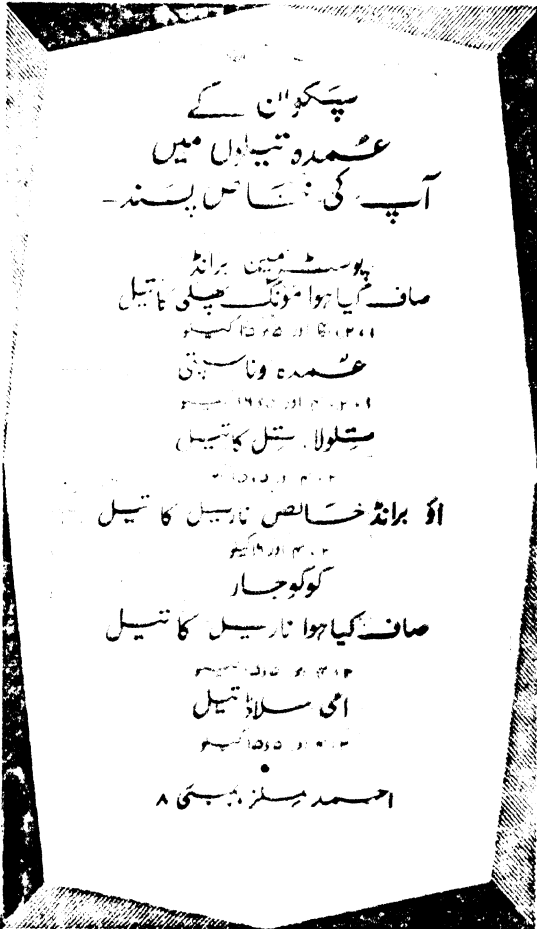 پکوان کے
عمدہ تیلوں میں
آپ کی خاص پسند۔
پوسٹ مین برانڈ
صاف کیا ہوا مونگ پھلی کا تیل
عمدہ وناسپتی
تلولا۔ تل کا تیل
اؤ برانڈ خالص ناریل کا تیل
۲، ۴، اور ۱۶ کیلو
کوکوجار
صاف کیا ہوا ناریل کا تیل
امی سلاڈ تیل
احمد ملز، بمبئی ۸